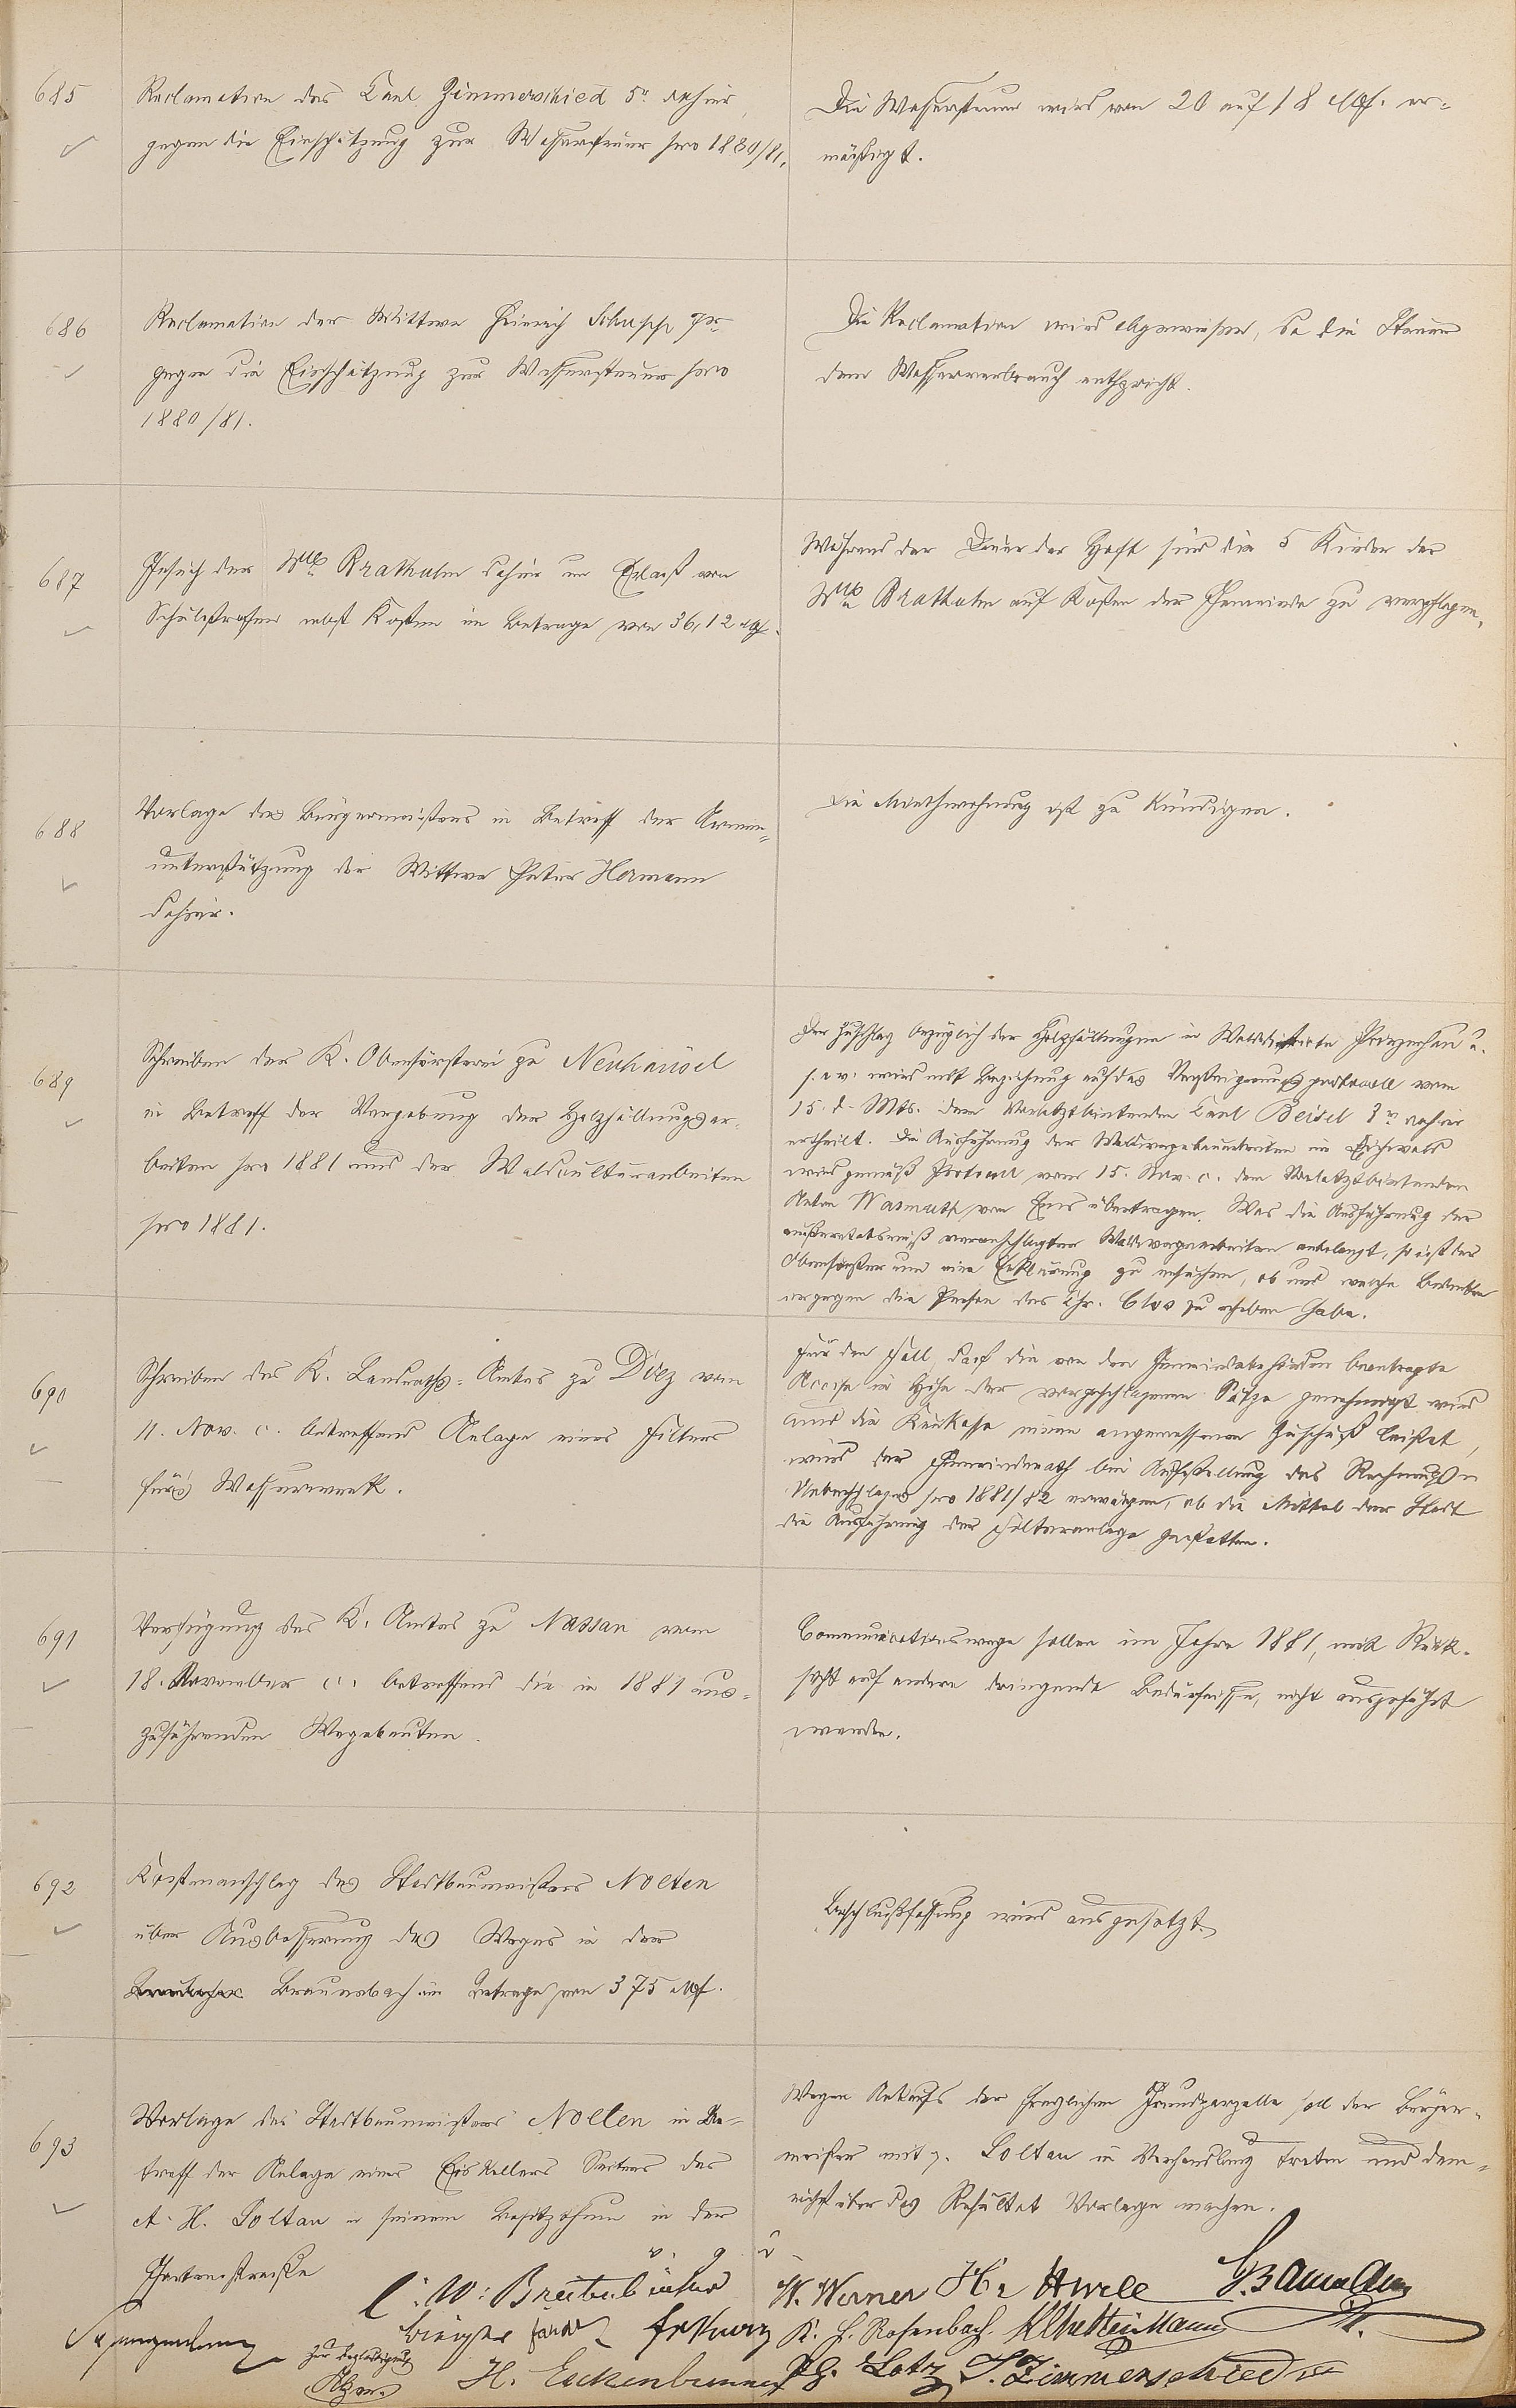 685
Reclamation des Carl Zimmerschied 5r dahier
gegen die Einschätzung zur Wassersteuer pro 1880/81.
Die Wassersteuer wird von 20 auf 18 Mk. er-
mäßigt.
686
Reclamation der Wittwe Heinrich Schupp
gegen die Einschätzung zur Wassersteuer pro
1880/81.
Die Reclamation wird abgewiesen, da die Steuer
dem Wasserverbrauch entspricht.
687
Gesuch der Brathuhn dahier um Erlaß von
Schulstrafen nebst Kosten im Betrage von 36,12 Mk.
Während der Dauer der Haft sind die 5 Kinder der
Brathuhn auf Kosten der Gemeinde zu verpflegen.
688
Vorlage des Bürgermeisters in Betreff der Armen-
unterstützung der Wittwe Peter Hermann
dahier.
Die Miethwohnung ist zu kündigen.
689
Schreiben der K. Oberförsterei zu Neuhäusel
in Betreff der Vergebung der Holzfällungsar-
beiten pro 1881 und der Waldculturarbeiten
pro 1881.
Der Zuschlag bezüglich der Holzfällungen in Walddistrikte u.
s. w. wird mit Beziehung auf das Versteigerungsprotocoll vom
15. d. Mts. dem Vorletztbietenden Carl Beisel 3r dahier
ertheilt. Die Ausführung der Waldwegebauarbeiten im Eichwald
wird gemäß Protocoll vom 15. Nov. c. dem Vorletztbietenden
Anton Wasmuth von Ems übertragen. Was die Ausführung der
außeretatsmäßig veranschlagten Waldwegearbeiten anbelangt, so ist der
Oberförster um eine Erklärung zu ersuchen, ob und welche Bedenken
er gegen die Person des Chr. Clos zu erheben habe.
690
Schreiben des K. Landraths-Amtes zu Diez vom
11. Nov. c. betreffend Anlage eines Filters
für's Wasserwerk.
Für den Fall, daß die von den Gemeindebehörden beantragte
Accise in Höhe der vorgeschlagenen Sätze genehmigt wird
und die Kurkasse einen angemessenen Zuschuß leistet,
wird der Gemeinderath bei Aufstellung des Rechnungs-
Ueberschlages pro 1881/82 erwägen, ob die Mittel der Stadt
die Ausführung der Filteranlage gestatten.
691
Verfügung des K. Amtes zu Nassau vom
18. November c. betreffend die in 1881 aus-
zuführenden Wegebauten.
Communicationswege sollen im Jahre 1881, mit Rück-
sicht auf andere dringende Bedürfnisse, nicht ausgeführt
werden.
692
Kostenanschlag des Stadtbaumeisters Nolten
über Ausbesserung des Weges in der
Braunebach im Betrage von 375 Mk.
Beschlußfassung wird ausgesetzt.
693
Vorlage des Stadtbaumeisters Nolten in Be-
treff der Anlage eines Eiskellers Seitens des
A. H. Soltau in seinem Besitzthum in der
Gartenstraße
Wegen Ankaufs der fraglichen Grundparzelle soll der Bürger-
meister mit p. Soltau in Verhandlung treten und dem-
nächst über das Resultat Vorlage machen.
v. g. u.
C. W. Breitenbücher W. Werner
K. H. Rosenbach
zur Beglaubigung
H. Eckenbrenner Ph. Lotz J. Zimmerschied